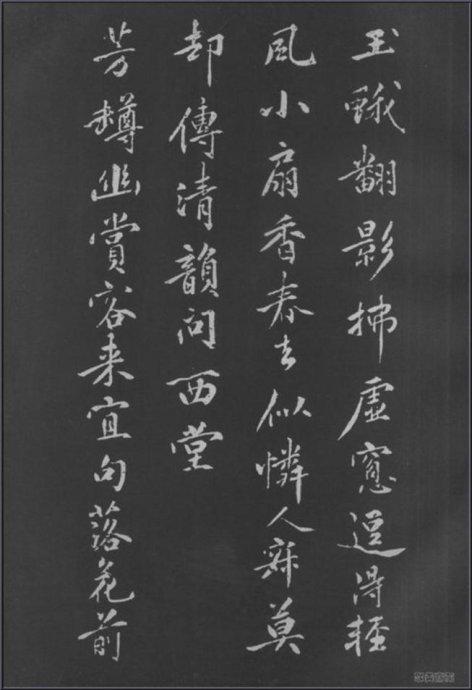 玉蛾翻影拂虛窻逗得輕
風小扇香春去似憐人寂莫
却傳清韻問西堂
芳樽幽賞客来宜句落花前